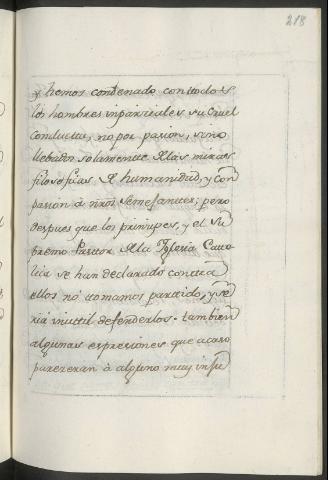 218
y hemos condenado con todos
los hombres inparciales su cruel
conducta, no por pasion, sino
llebados solamente de las miras
filosoficas de humanidad, y con
pasion à nros semejantes; pero
despues que los principes, y el Su
bremo Pastor de la Yglesia Cato
lica se han declarado contra
ellos no tomamos partido, y se
ria inutil defenderlos. tambien
algunas espresiones que acaso
pareceran à alguno muy